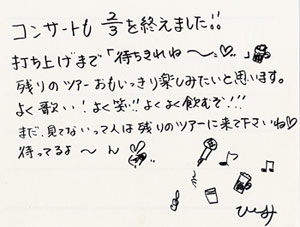 コンサートも 2/3 を終えました!!
打ち上げまで「待ちきれね〜。♡。」
残りのツアーおもいっきり楽しみたいと思います。
よく歌い!よく笑い!!よくよく飲むぞ!!!
まだ、見てないって人は残りのツアーに来て下さいね♡
待ってるよ〜ん